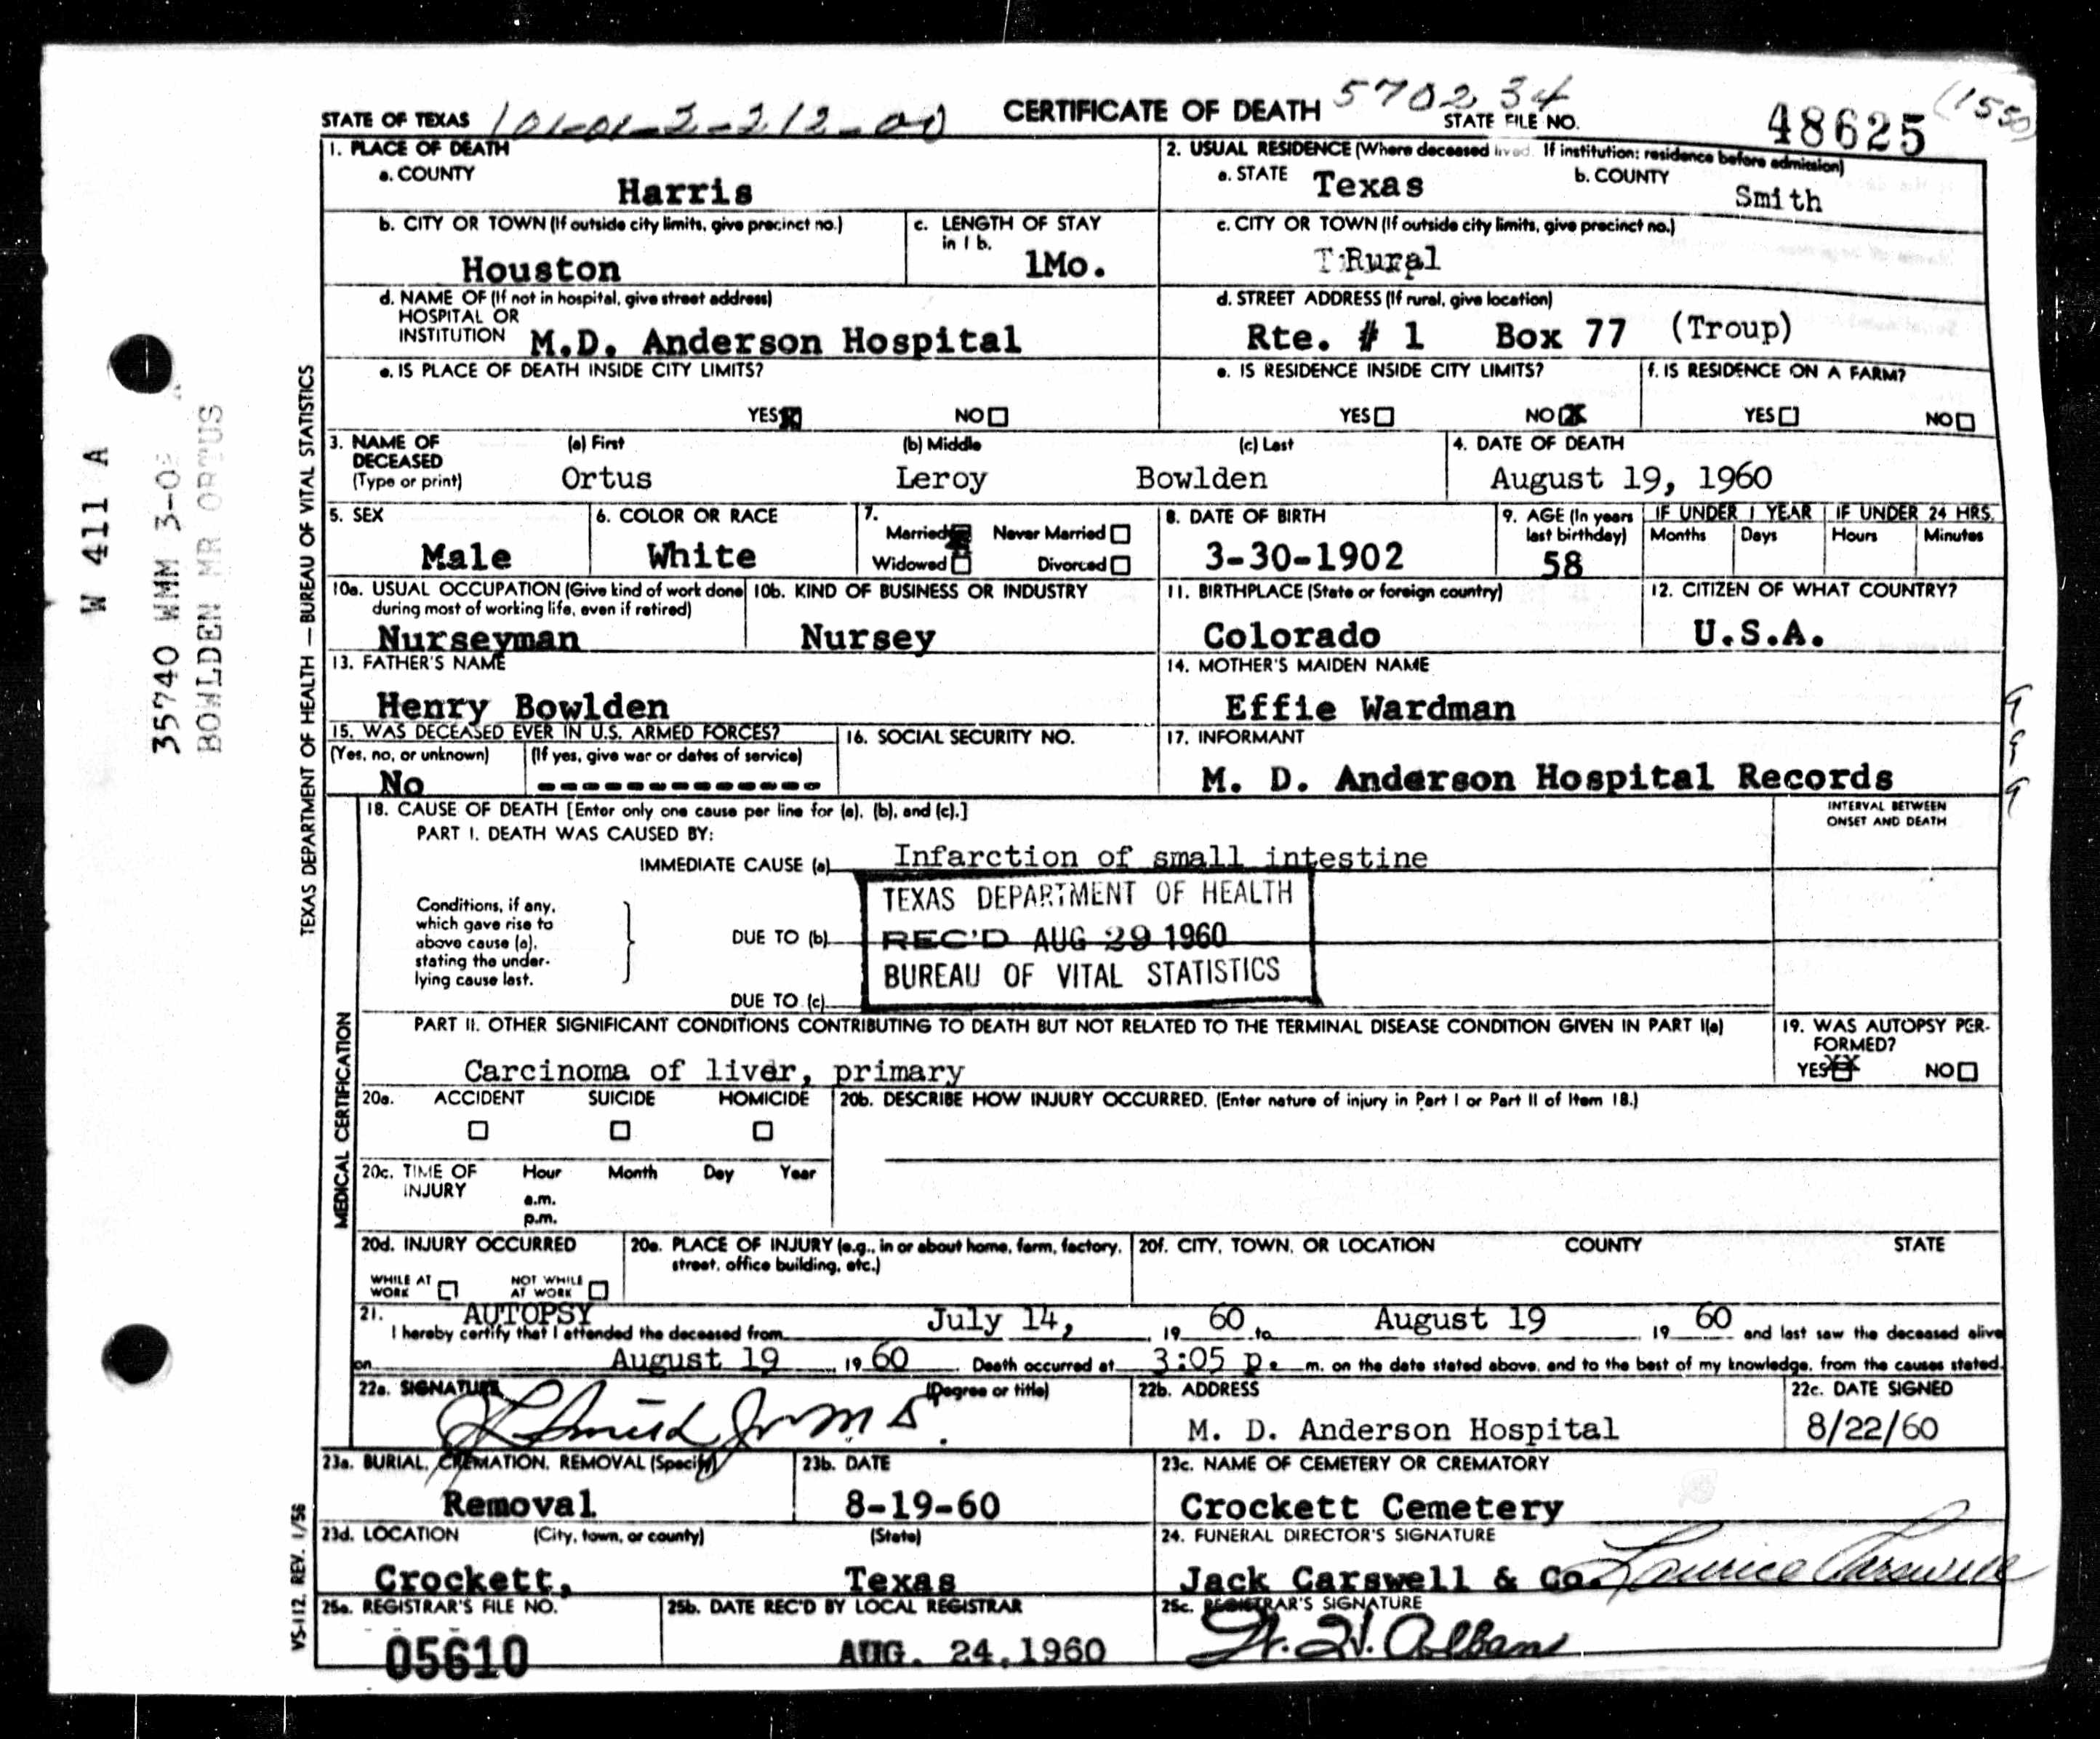 STATE OF TEXAS
CERTIFICATE OF DEATH 570234
STATE FILE NO. 48625
1. PLACE OF DEATH
a. COUNTY
Harris
2. USUAL RESIDENCE (Where deceased lived. If institution: residence before admission)
a. STATE Texas
b. COUNTY Smith
b. CITY OR TOWN (If outside city limits, give precinct no.)
Houston
c. LENGTH OF STAY in 1 b.
1Mo.
c. CITY OR TOWN (If outside city limits, give precinct no.)
T Rural
d. NAME OF (If not in hospital, give street address)
HOSPITAL OR
INSTITUTION M.D. Anderson Hospital
d. STREET ADDRESS (If rural, give location)
Rte. # 1 Box 77 (Troup)
e. IS PLACE OF DEATH INSIDE CITY LIMITS?
YES X NO
e. IS RESIDENCE INSIDE CITY LIMITS?
YES NO X
f. IS RESIDENCE ON A FARM?
YES NO
3. NAME OF DECEASED
(Type or print)
(a) First (b) Middle (c) Last
Ortus Leroy Bowlden
4. DATE OF DEATH
August 19, 1960
5. SEX
Male
6. COLOR OR RACE
White
7.
Married Never Married
Widowed Divorced
8. DATE OF BIRTH
3-30-1902
9. AGE (In years last birthday)
58
IF UNDER 1 YEAR
Months Days
IF UNDER 24 HRS.
Hours Minutes
10a. USUAL OCCUPATION (Give kind of work done
during most of working life, even if retired)
Nurseyman
10b. KIND OF BUSINESS OR INDUSTRY
Nursey
11. BIRTHPLACE (State or foreign country)
Colorado
12. CITIZEN OF WHAT COUNTRY?
U.S.A.
13. FATHER'S NAME
Henry Bowlden
14. MOTHER'S MAIDEN NAME
Effie Wardman
15. WAS DECEASED EVER IN U.S. ARMED FORCES?
(Yes, no, or unknown) (If yes, give war or dates of service)
No -------------
16. SOCIAL SECURITY NO.
17. INFORMANT
M. D. Anderson Hospital Records
18. CAUSE OF DEATH [Enter only one cause per line for (a), (b), and (c).]
INTERVAL BETWEEN
ONSET AND DEATH
PART I. DEATH WAS CAUSED BY:
IMMEDIATE CAUSE (a) Infarction of small intestine
Conditions, if any,
which gave rise to
above cause (a),
stating the under-
lying cause last.
DUE TO (b)
DUE TO (c)
TEXAS DEPARTMENT OF HEALTH
REC'D AUG 29 1960
BUREAU OF VITAL STATISTICS
PART II. OTHER SIGNIFICANT CONDITIONS CONTRIBUTING TO DEATH BUT NOT RELATED TO THE TERMINAL DISEASE CONDITION GIVEN IN PART I(a)
Carcinoma of liver, primary
19. WAS AUTOPSY PER-
FORMED?
YES XX NO
20a. ACCIDENT SUICIDE HOMICIDE
20b. DESCRIBE HOW INJURY OCCURRED. (Enter nature of injury in Part I or Part II of Item 18.)
20c. TIME OF INJURY
Hour Month Day Year
a.m.
p.m.
20d. INJURY OCCURRED
WHILE AT WORK NOT WHILE AT WORK
20e. PLACE OF INJURY (e.g., in or about home, farm, factory,
street, office building, etc.)
20f. CITY, TOWN, OR LOCATION COUNTY STATE
21. AUTOPSY
I hereby certify that I attended the deceased from July 14, 19 60 to August 19 19 60 and last saw the deceased alive
on August 19 19 60. Death occurred at 3:05 p. m. on the date stated above, and to the best of my knowledge, from the causes stated.
22a. SIGNATURE (Degree or title)
22b. ADDRESS
M. D. Anderson Hospital
22c. DATE SIGNED
8/22/60
23a. BURIAL, CREMATION, REMOVAL (Specify)
Removal
23b. DATE
8-19-60
23c. NAME OF CEMETERY OR CREMATORY
Crockett Cemetery
23d. LOCATION (City, town, or county) (State)
Crockett, Texas
24. FUNERAL DIRECTOR'S SIGNATURE
Jack Carswell & Co.
25a. REGISTRAR'S FILE NO.
05610
25b. DATE REC'D BY LOCAL REGISTRAR
AUG. 24, 1960
25c. REGISTRAR'S SIGNATURE
TEXAS DEPARTMENT OF HEALTH — BUREAU OF VITAL STATISTICS
MEDICAL CERTIFICATION
VS-112, REV. 1/56
W 411 A
35740 WMM 3-0
BOWLDEN MR ORTUS
999